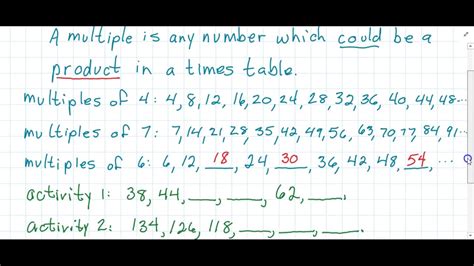 A multiple is any number which could be a
product in a times table.
multiples of 4: 4,8,12, 16,20,24, 28,32,36, 40,44,48...
multiples of 7: 7,14,21,28,35,42,49,56,63,70,77,84,91...
multiples of 6: 6, 12, 18, 24, 30, 36, 42, 48, 54, ...
activity 1: 38, 44, __, __, 62, __.
activity 2: 134, 126, 118, __, __, __.